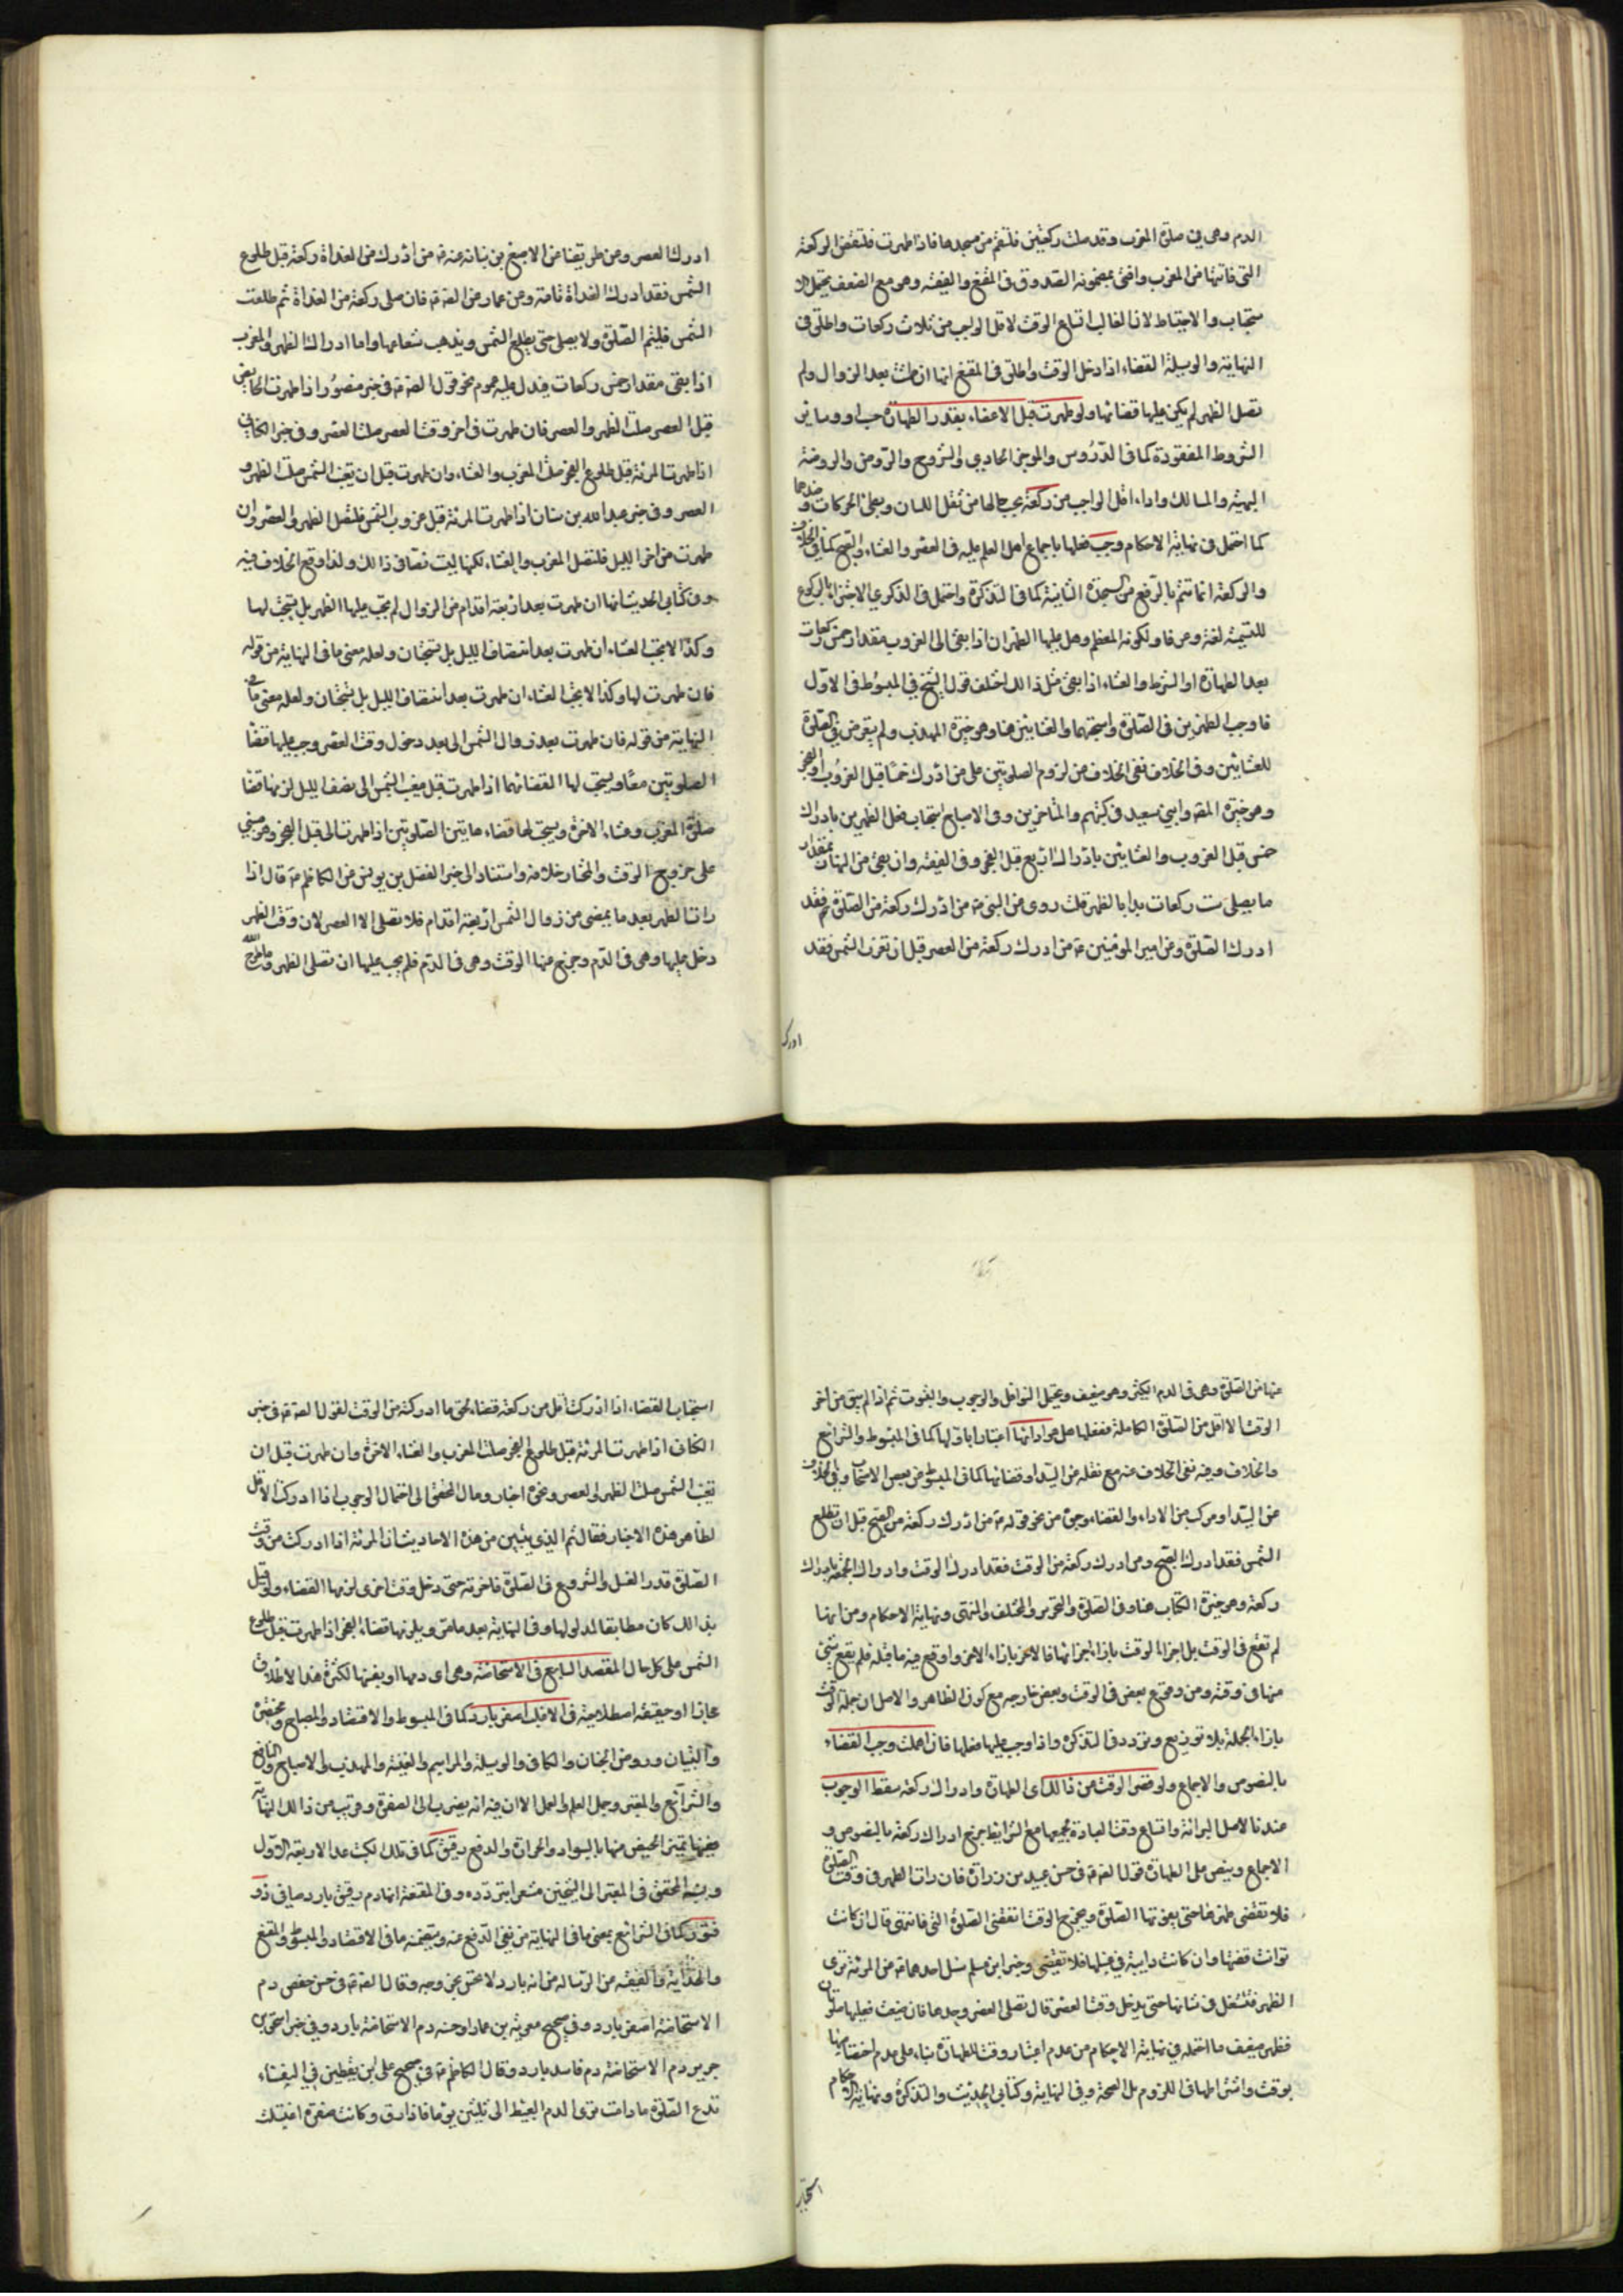 الدم وهي في صلوة المغرب وقد صلت ركعتين فلتقم من مسجدها فاذا طهرت فلتقض الركعة
التي فاتتها من المغرب وافتى بمضمونه الصدوق في المقنع والفقيه وهو مع الضعف يحتمل الا
ستحباب والاحتياط لان الغالب اتساع الوقت لاقل الواجب من ثلاث ركعات واطلق في
النهاية والوسيلة القضاء اذا دخل الوقت واطلق في المقنع انها ان طمثت بعد الزوال ولم
تصل الظهر لم يكن عليها قضائها ولو طهرت قبل الانقضاء بقدر الطهارة حسب او وساير
الشروط المفقودة كما في الدروس والموجز الحاوي والشروح والروض والروضة
البهية والمسالك واداء اقل الواجب من ركعة بحسب حالها من ثقل اللسان وبطئ الحركات و ضدهما
كما احتمل في نهاية الاحكام وجب فعلها باجماع اهل العلم عليه في العصر والعشاء والصبح كما في الخلاف
والركعة انما تتم بالرفع من السجدة الثانية كما في التذكرة واحتمل في الذكرى الاجتزاء بالركوع
للتسمية لغة وعرفا ولكونه المعظم وهل عليها الظهران اذا بقى الى الغروب مقدار خمس ركعات
بعد الطهارة او الشرط والعشاء اذا بقى مثل ذالك اختلف قول الشيخ في المبسوط ففي الاول
فاوجب الظهرين في الصلوة واستحبهما والعشائين هنا وهو خيرة المهذب ولم يتعرض في الصلوة
للعشائين وفي الخلاف نفى الخلاف من لزوم الصلوتين على من ادرك خمسا قبل الغروب او الفجر
وهو خيرة المص وابني سعيد في كتبهم والمتاخرين وفي الاصباح استحباب فعل الظهرين بادراك
خمس قبل الغروب والعشائين بادراك اربع قبل الفجر وفي الفقيه وان بقى من النهار بمقدار
ما يصلى ست ركعات بدا بالظهر قلت روى عن النبي ص من ادرك ركعة من الصلوة فقد
ادرك الصلوة وعن امير المؤمنين ع من ادرك ركعة من العصر قبل ان تغرب الشمس فقد
ادرك
ادرك العصر ومن طريقنا عن الاصبغ بن نباته عنه ع من ادرك من الغداة ركعة قبل طلوع
الشمس فقد ادرك الغداة تامة وعن عمار عن الص ع فان صلى ركعة من الغداة ثم طلعت
الشمس فليتم الصلوة ولا يصلى حتى يطلع الشمس ويذهب شعاعها واما ادراك الظهر والمغرب
اذا بقى مقدار خمس ركعات فيدل عليه عموم نحو قول الص ع في خبر منصور اذا طهرت الحايض
قبل العصر صلت الظهر والعصر فان طهرت في اخر وقت العصر صلت العصر وفي خبر الكناني
اذا طهرت المرئة قبل طلوع الفجر صلت المغرب والعشاء وان طهرت قبل ان تغيب الشمس صلت الظهر و
العصر وفي خبر عبد الله بن سنان اذا طهرت المرئة قبل غروب الشمس فلتصل الظهر والعصر وان
طهرت من اخر الليل فلتصل المغرب والعشاء لكنها ليست نصا في ذالك ولذا وقع الخلاف فيه
وفي كتابي الحديث انها ان طهرت بعد اربعة اقدام من الزوال لم يجب عليها الظهر بل يستحب لها
وكذا لا يجب العشاء ان طهرت بعد انتصاف الليل بل تستحبان ولعله معنى ما في النهاية من قوله
فان طهرت لها وكذا لا يجب العشاء ان طهرت بعد انتصاف الليل بل تستحبان ولعله معنى ما في
النهاية من قوله فان طهرت بعد زوال الشمس الى بعد دخول وقت العصر وجب عليها قضا
الصلوتين معا ويستحب لها القضائهما اذا طهرت قبل مغيب الشمس الى نصف الليل لزمها قضا
صلوة المغرب وعشاء الاخرة ويستحب لها قضاء هاتين الصلوتين اذا طهرت الى قبل الفجر وهو مبني
على خروج الوقت والمختار خلافه واستناد الى خبر الفضل بن يونس عن الكاظم ع قال اذا
رات الطهر بعد ما يمضى من زوال الشمس اربعة اقدام فلا تصلى الا العصر لان وقت الظهر
دخل عليها وهي في الدم وخرج عنها الوقت وهي في الدم فلم يجب عليها ان تصلى الظهر وما طرح الله
عنها من الصلوة وهي في الدم اكثر وهو ضعيف ويحتمل النوافل والوجوب والفوت ثم اذا لم يبق من اخر
الوقت الا اقل من الصلوة الكاملة ففعلها هل هو ادائها اعتبارا باولها كما في المبسوط والشرائع
والخلاف وفيه نفى الخلاف عنه مع نقله عن السيد او قضائها كما في المبسوط عن بعض الاصحاب وفي الخلاف
عن السيد او مركب من الاداء والقضاء وجوه من نحو قوله ع من ادرك ركعة من الصبح قبل ان تطلع
الشمس فقد ادرك الصبح ومن ادرك ركعة من الوقت فقد ادرك الوقت وادراك الجمعة بادراك
ركعة وهو خيرة الكتاب هنا وفي الصلوة والتحرير والمختلف والمنتهى ونهاية الاحكام ومن انها
لم تقع في الوقت بل اجزاء الوقت بازاء اجزائها فالاخر بازاء الاخر واوقع فيه ما قبله فلم يقع شئ
منها في وقته ومن وقوع بعض في الوقت وبعض خارجه مع كون الظاهر والاصل ان جملة الوقت
بازاء الجملة بلا توزيع وتردد في التذكرة واذا وجب عليها فعلها فان اهملت وجب القضاء
بالنصوص والاجماع ولو قصر الوقت عن ذالك اى الطهارة وادراك ركعة سقط الوجوب
عندنا لاصل البرائة واتساع وقت العبادة لجميعها مع الشرايط خرج ادراك ركعة بالنصوص و
الاجماع وينص على الطهارة قول الص ع في حسن عبيد بن زرارة فان رات الطهر في وقت الصلوة
فلا تقضى طهرها حتى يفوتها الصلوة ويخرج الوقت اتقضى الصلوة التي فاتتها قال ان كانت
توانت قضتها وان كانت دايبة في غسلها فلا تقضى وخبر ابن مسلم سئل احدهما ع عن المرئة ترى
الطهر فتشتغل في شانها حتى يدخل وقت العصر قال تصلى العصر وحدها فان ضيعت فعليها صلوتان
فظهر ضعف ما احتمله في نهاية الاحكام من عدم اعتبار وقت للطهارة بناء على عدم اختصاصها
بوقت واشتراطها في اللزوم بل الصحة وفي النهاية وكتابي الحديث والتذكرة ونهاية الاحكام
استحباب
استحباب القضاء اذا ادركت اقل من ركعة قضاء لحق ما ادركته من الوقت لقول الص ع في خبر
الكناني اذا طهرت المرئة قبل طلوع الفجر صلت المغرب والعشاء الاخرة وان طهرت قبل ان
تغيب الشمس صلت الظهر والعصر ونحوه اخبار ومال المحقق الى احتمال الوجوب اذا ادركت الاقل
لظاهر هذه الاخبار فقال ثم الذي يتبين من هذه الاحاديث ان المرئة اذا ادركت من وقت
الصلوة قدر الغسل والشروع في الصلوة فاخرته حتى دخل وقت اخرى لزمها القضاء ولو قيل
بذالك كان مطابقا لمدلولها وفي النهاية بعد ما مر ويلزمها قضاء الفجر اذا طهرت قبل طلوع
الشمس على كل حال المقصد السابع في الاستحاضة وهي اى دمها او بفسها لكثرة هذا الاطلاق
مجازا او حقيقة اصطلاحية في الاغلب اصفر بارد كما في المبسوط والاقتصاد والمصباح ومختصره
والتبيان وروض الجنان والكافي والوسيلة والمراسم والغنية والمهذب والاصباح والنافع
والشرائع والمعتبر وجمل العلم والعمل الا ان فيه انه يضرب الى الصفرة وقريب من ذالك النهاية
ففيها تميز الحيض منها بالسواد والحرارة والدفع رقيق كما في تلك الكتب عدا الاربعة الاول
ونسبه المحقق في المعتبر الى الشيخين مشعرا بتردده وفي المقنعة انها دم رقيق بارد صافى ذو
فتور كما في الشرائع بمعنى ما في النهاية من نفى الدفع عنه ويتضمنه ما في الاقتصاد والمبسوط والمقنع
والهداية والفقيه عن الرسالة من انه بارد لا تحس بخروجه وقال الص ع في حسن حفص دم
الاستحاضة اصفر بارد وفي صحيح معوية بن عمار او حسنه دم الاستحاضة بارد وفي خبر اسحق بن
جرير دم الاستحاضة دم فاسد بارد وقال الكاظم ع في صحيح على ابن يقطين في النفساء
تدع الصلوة ما دامت ترى الدم العبيط الى ثلثين يوما فاذا رق وكانت صفرة اغتسلت